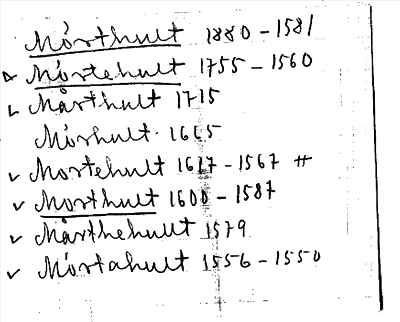 Mörthult 1880-1581
Mörtehult 1755-1560
Mårthult 1715
Mörhult 1665
Mortehult 1617-1567 #
Morthult 1600-1587
Mårthehult 1579
Mörtahult 1556-1550